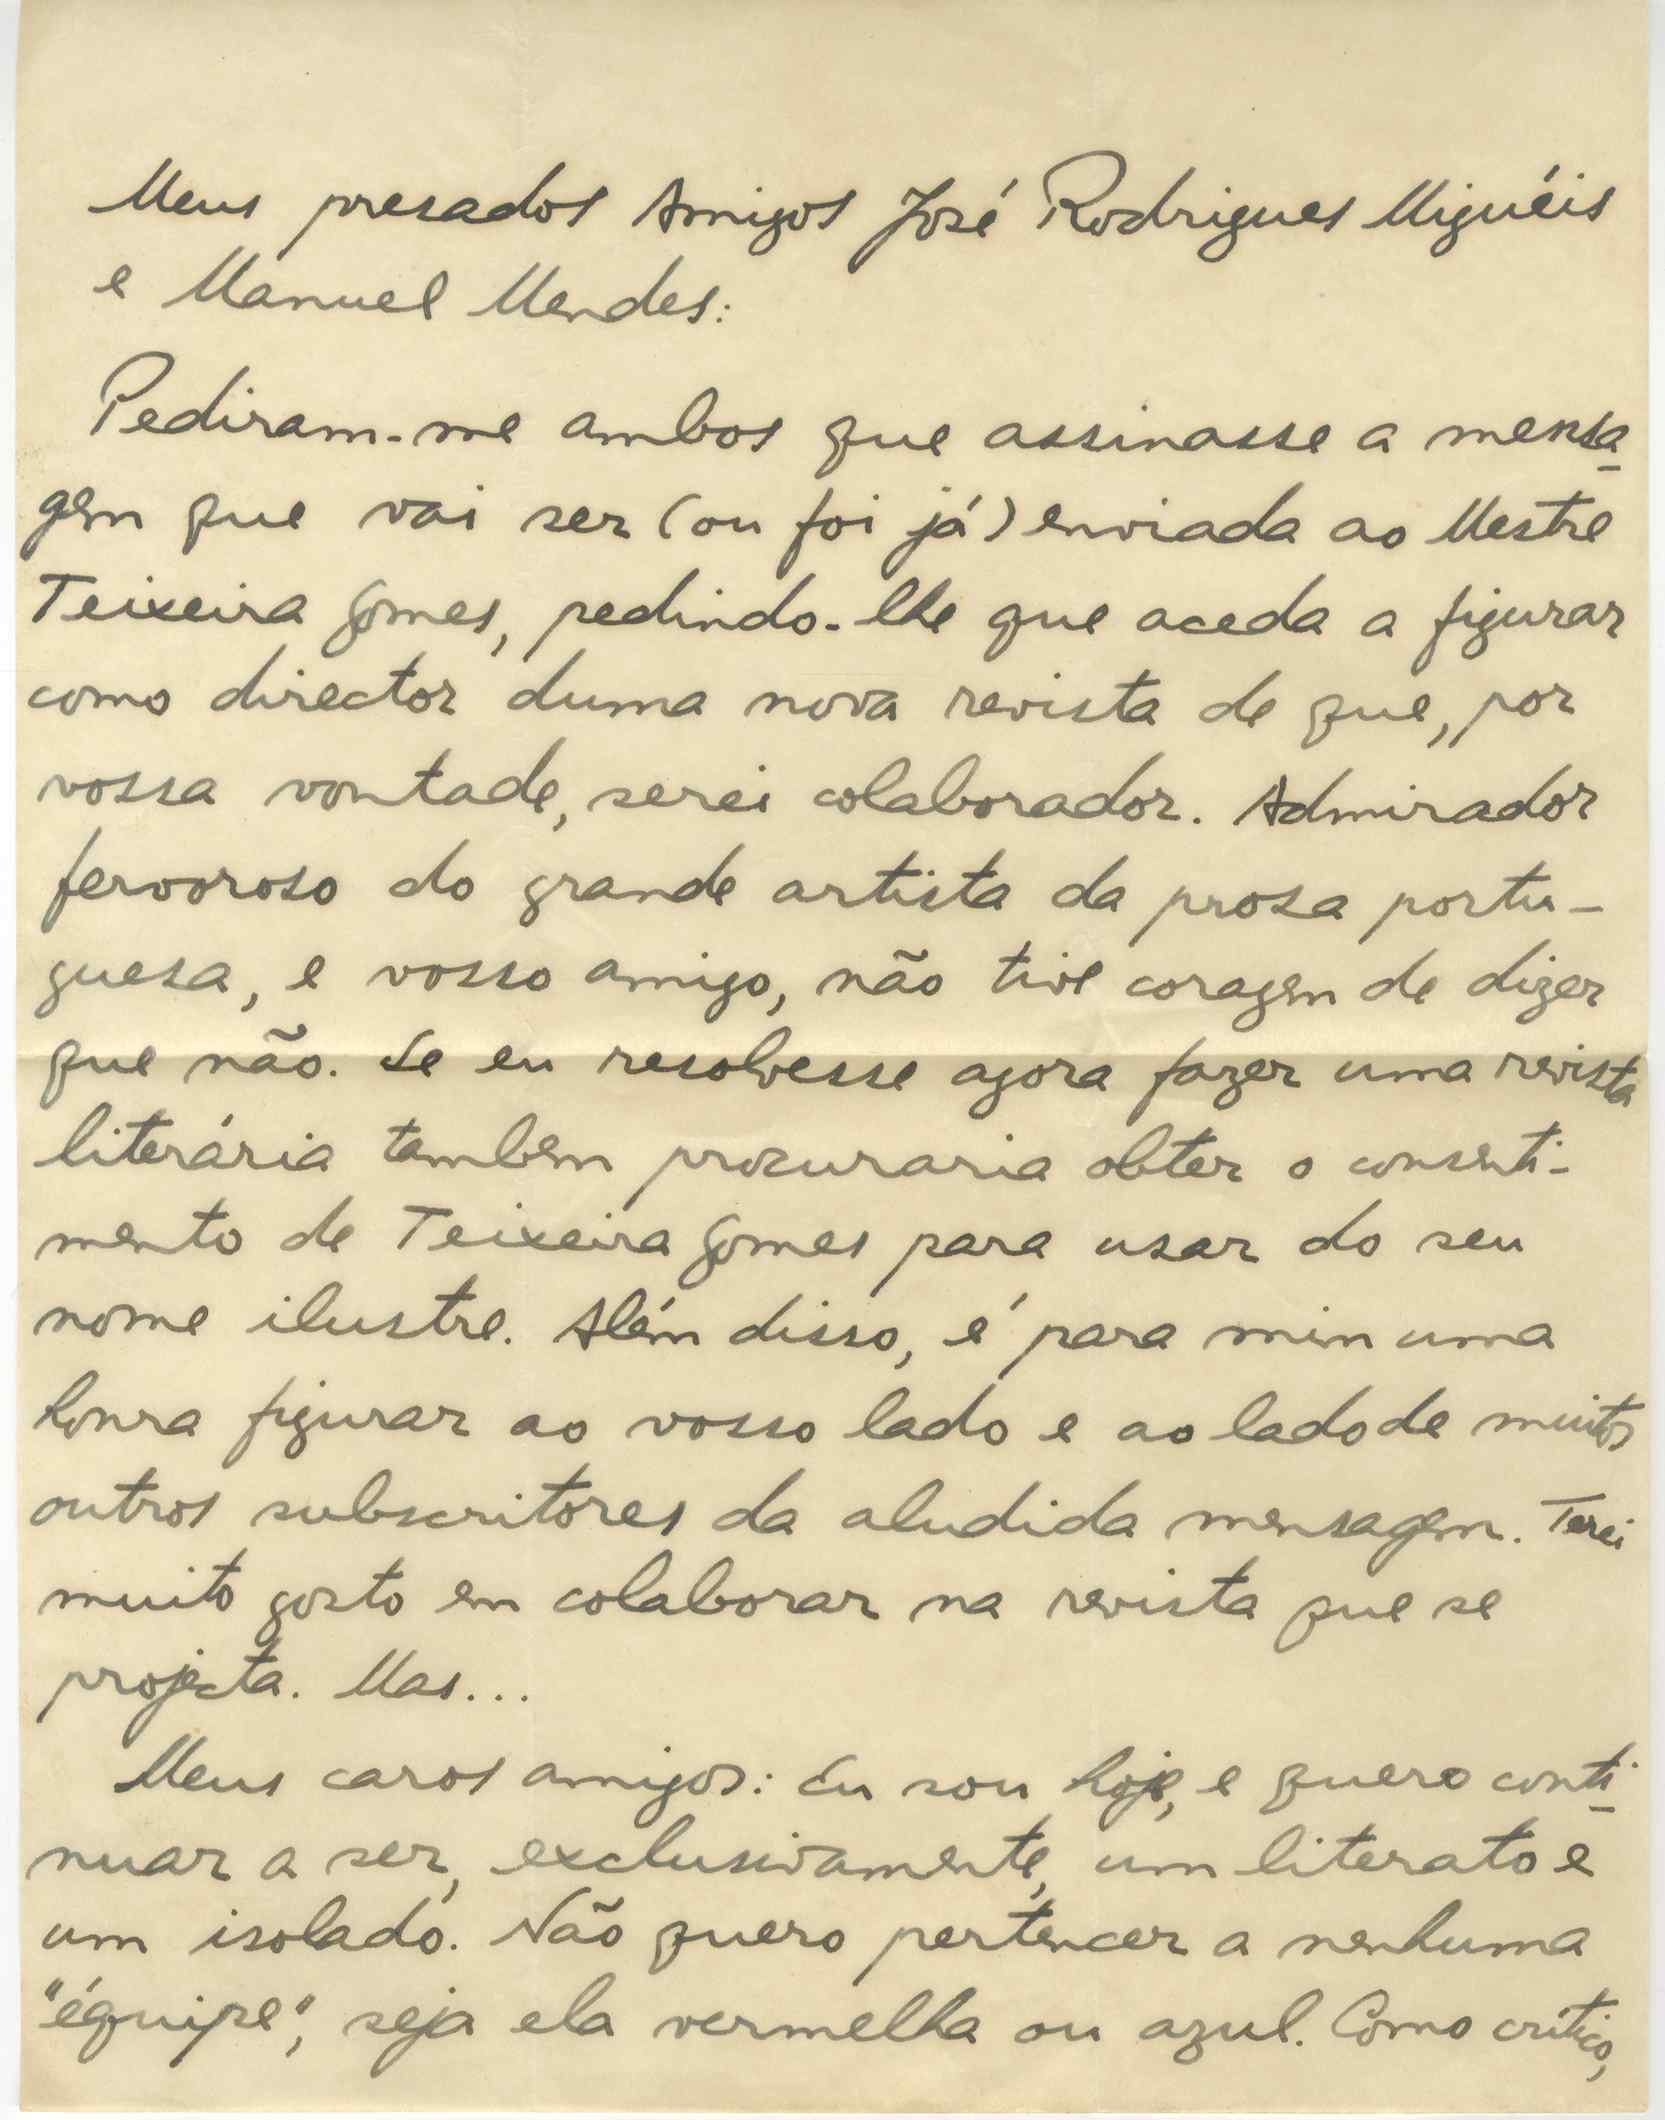 Meus presados Amigos José Rodrigues Miguéis
e Manuel Mendes:
Pediram-me ambos que assinasse a mensa-
gem que vai ser (ou foi já) enviada ao Mestre
Teixeira Gomes, pedindo-lhe que aceda a figurar
como director duma nova revista de que, por
vossa vontade, serei colaborador. Admirador
fervoroso do grande artista da prosa portu-
guesa, e vosso amigo, não tive coragem de dizer
que não. Se eu resolvesse agora fazer uma revista
literária tambem procuraria obter o consenti-
mento de Teixeira Gomes para usar do seu
nome ilustre. Além disso, é para mim uma
honra figurar ao vosso lado e ao lado de muitos
outros subscritores da aludida mensagem. Terei
muito gosto em colaborar na revista que se
projecta. Mas...
Meus caros amigos: Eu sou hoje, e quero conti-
nuar a ser, exclusivamente, um literato e
um isolado. Não quero pertencer a nenhuma
"équipe", seja ela vermelha ou azul. Como crítico,